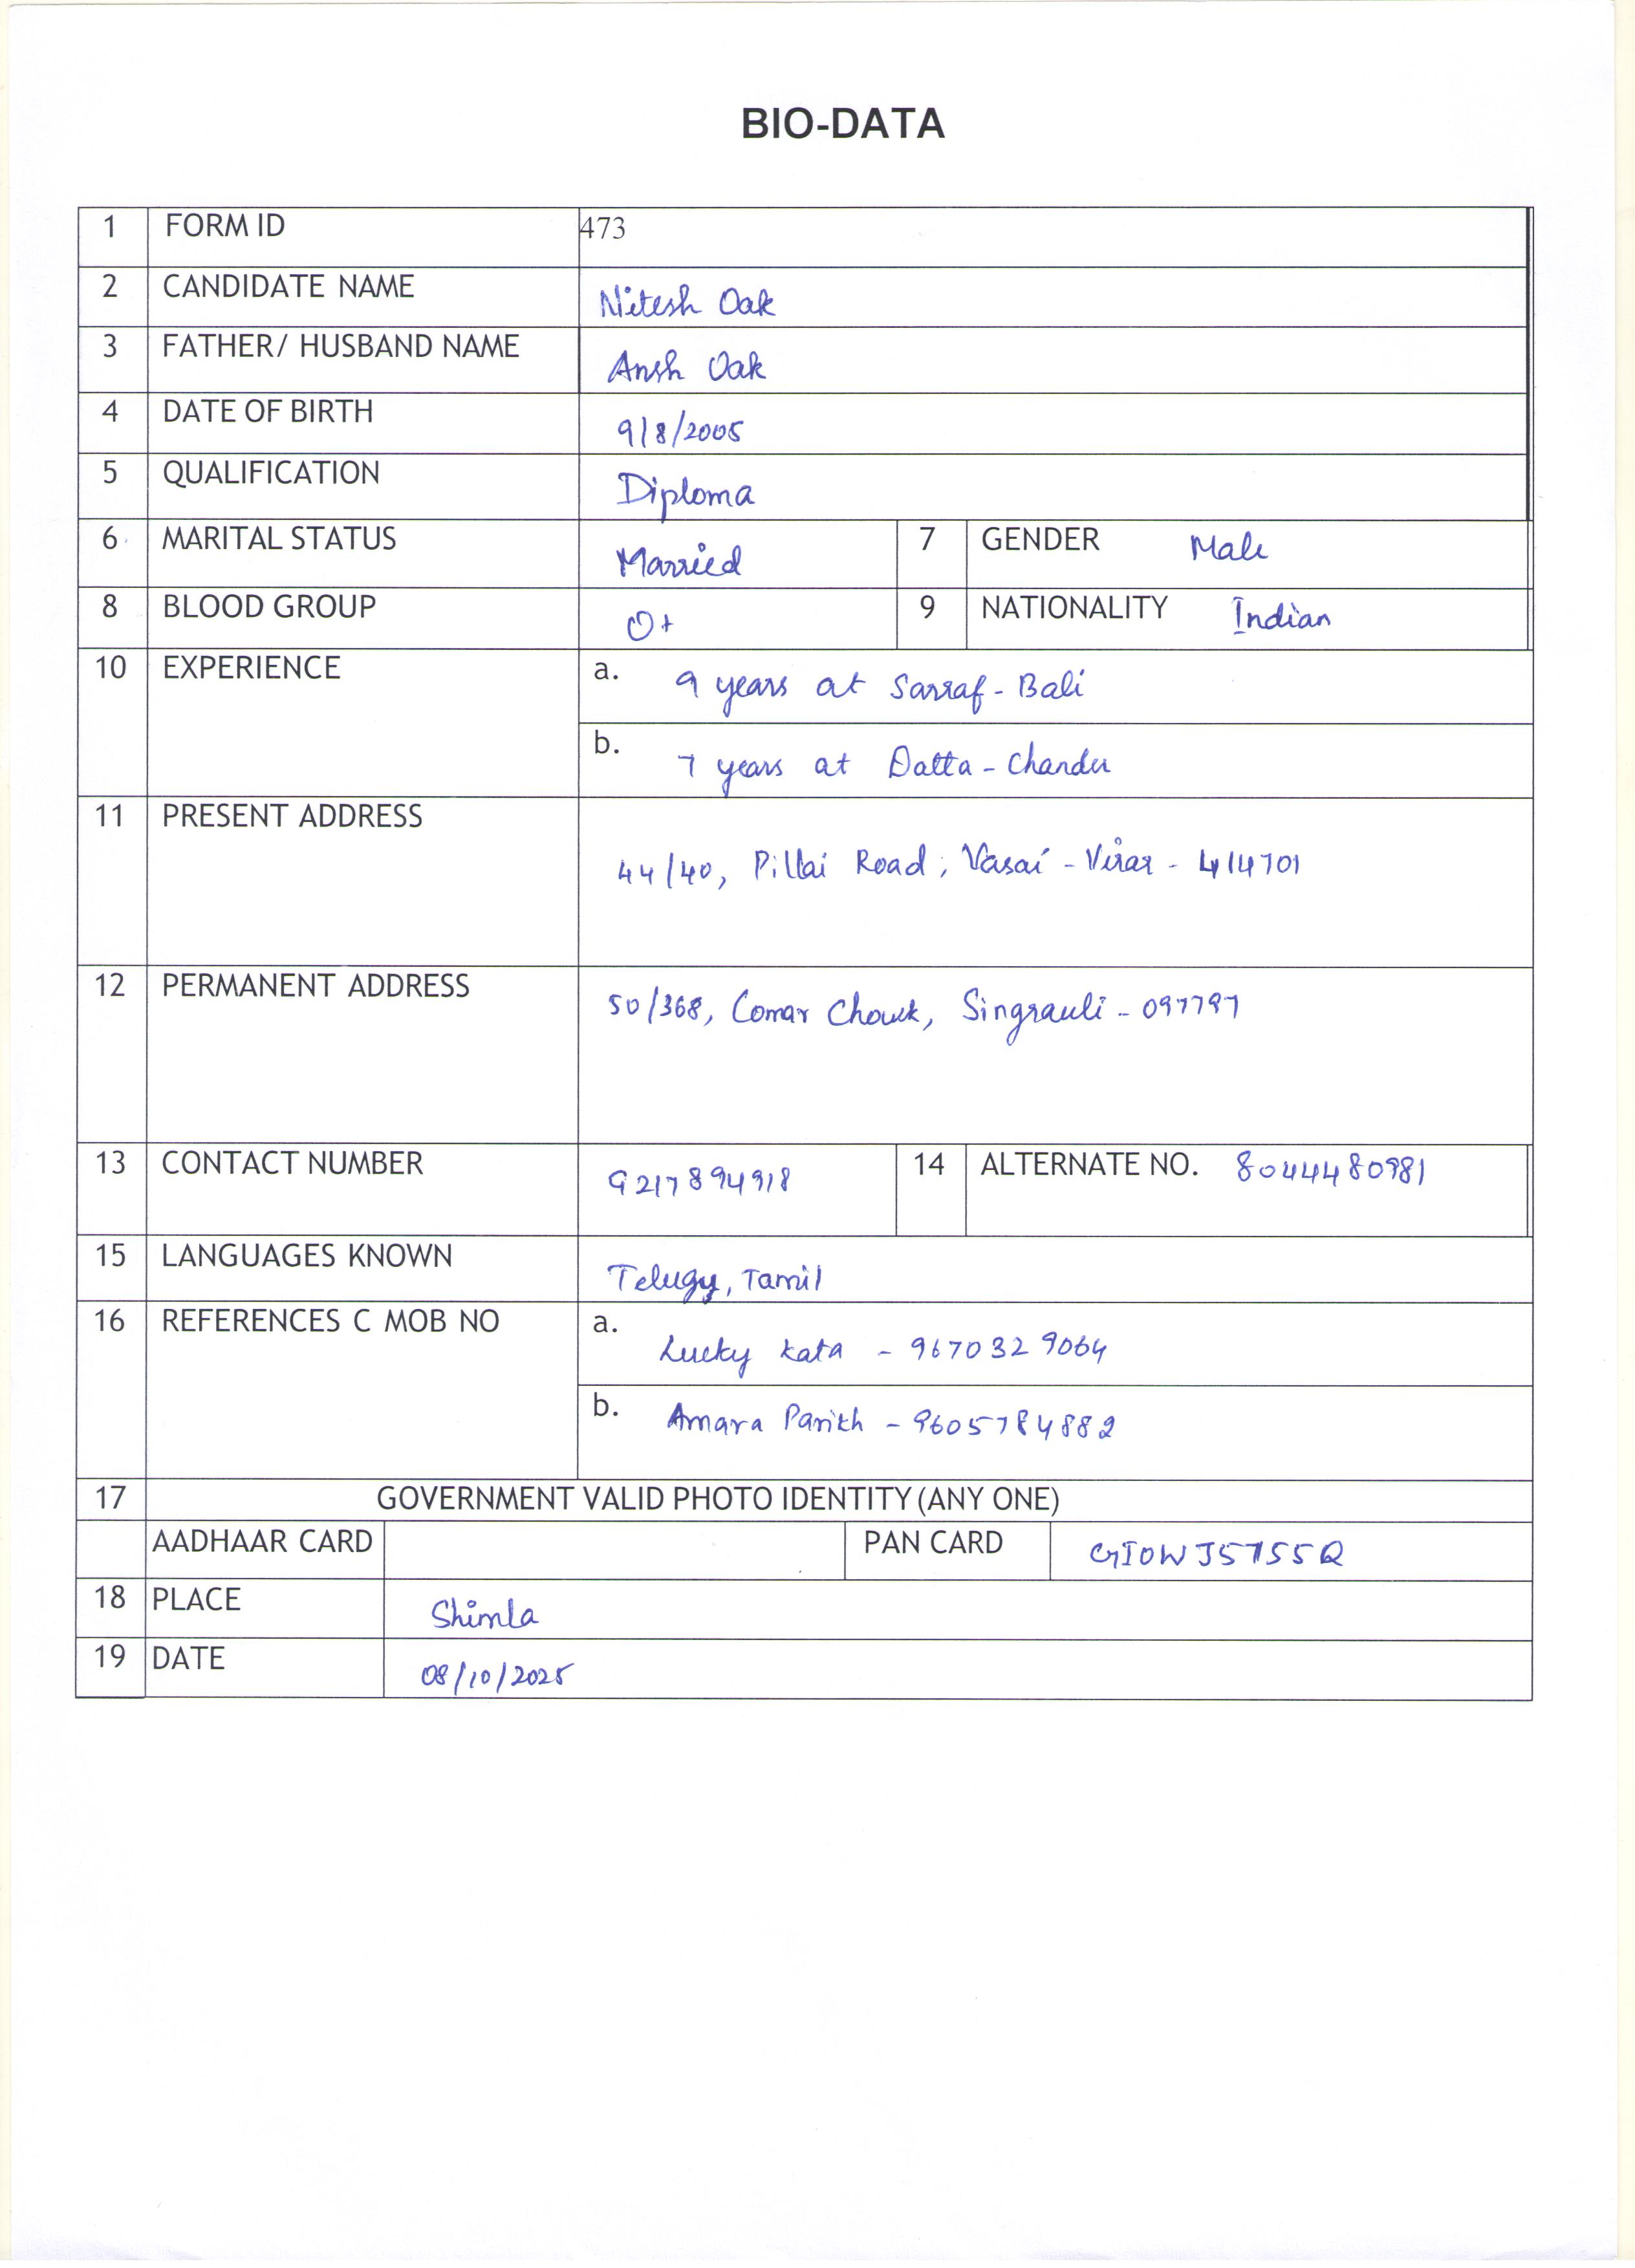 BIO-DATA
1 FORM ID 473
2 CANDIDATE NAME Nitesh Oak
3 FATHER/ HUSBAND NAME Ansh Oak
4 DATE OF BIRTH 9/8/2005
5 QUALIFICATION Diploma
6 MARITAL STATUS Married 7 GENDER Male
8 BLOOD GROUP O+ 9 NATIONALITY Indian
10 EXPERIENCE a. 9 years at Sarraf - Bali
b. 7 years at Datta - Chander
11 PRESENT ADDRESS 44/40, Pillai Road, Vasai - Virar - 414701
12 PERMANENT ADDRESS 50/368, Comar Chowk, Singrauli - 097797
13 CONTACT NUMBER 9217894918 14 ALTERNATE NO. 8044480981
15 LANGUAGES KNOWN Telugy, Tamil
16 REFERENCES C MOB NO a. Lucky Kata - 9670329064
b. Amara Parikh - 9605784882
17 GOVERNMENT VALID PHOTO IDENTITY (ANY ONE)
AADHAAR CARD PAN CARD GIOWJ5755Q
18 PLACE Shimla
19 DATE 08/10/2025